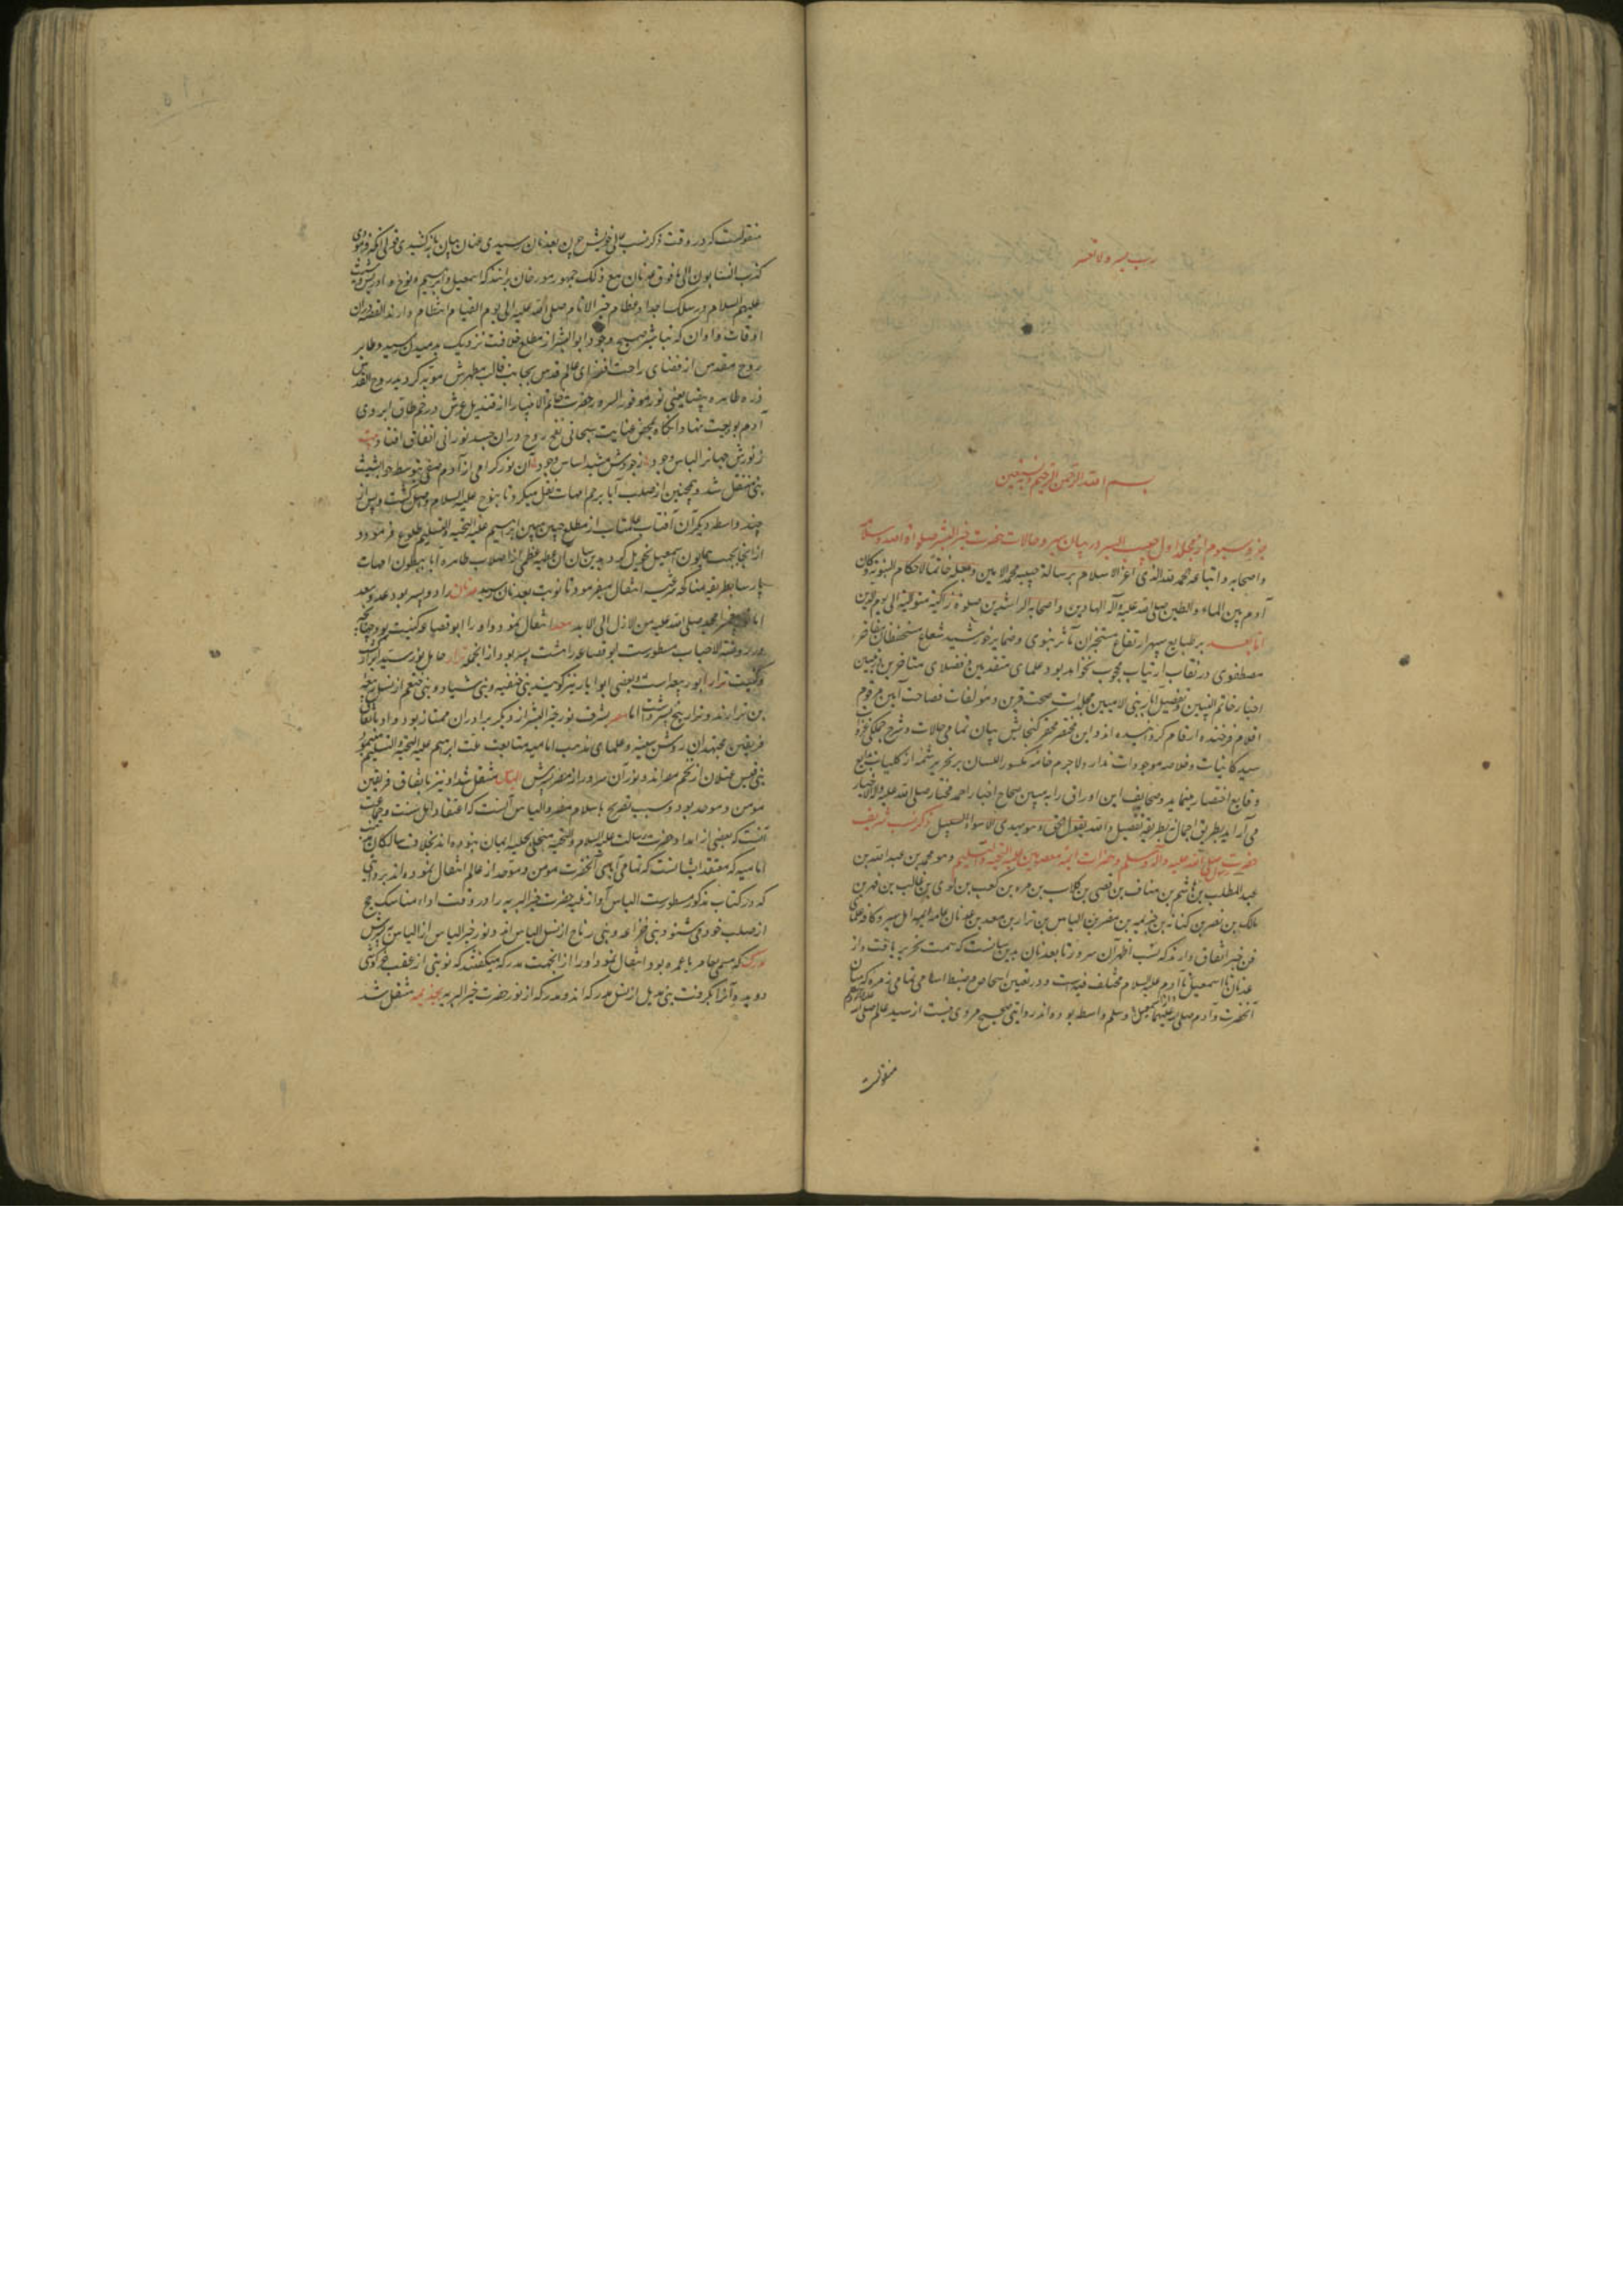 رب یسر ولا تعسر
بسم الله الرحمن الرحیم وبه نستعین
جزو سیوم از مجلد اول حبیب السیر در بیان سیر و حالات حضرت خیر البشر صلواة الله و سلامه
و اصحابه و اتباعه الحمد لله الذی اعز الاسلام برسالة حبیبه محمد الامین و جعله خاتما لاحکام النبوة و کان
آدم بین الماء والطین صلی الله علیه وآله الهادین و اصحابه الراشدین صلوة زاکیة متوالیة الی یوم الدین
اما بعد بر طبایع سپهر ارتفاع مستخبران مآثر نبوی و ضمایر خورشید شعاع مستحفظان مفاخر
مصطفوی در نقاب ارتیاب محجوب نخواهد بود علمای متقدمین و فضلای متاخرین در تبیین
اخبار خاتم النبیین و تفصیل آثار نبی الامیین مجلدات صحت قرین و مؤلفات فصاحت آیین مرقوم
اقلام فرخنده ارقام گردانیده‌اند و این مختصر محقر گنجایش بیان تمامی حالات و شرح جملگی غزوات
سید کاینات و خلاصه موجودات ندارد لاجرم خامه مکسور اللسان بر تحریر شمه از کلیات وقایع
و قایع اختصار مینماید و صحایف این اوراق را به مبین صحاح اخبار احمد مختار صلی الله علیه و آله الاخیار
می آراید بطریق اجمال نه بطریقه تفصیل والله یقول الحق و هو یهدی الا سواء السبیل ذکر نسب شریف
حضرت رسول صلی الله علیه وآله وسلم و حضرات ائمه معصومین علیه التحیة والتسلیم و هو محمد بن عبد الله بن
عبد المطلب بن هاشم بن مناف بن قصی بن کلاب بن مره بن کعب بن لوی بن غالب بن فهر بن
مالک بن نضر بن کنانه بن خزیمه بن مضر بن الیاس بن نزار بن معد بن عدنان عامه ایمه اهل سیر و کافه علمای
فن خبر اتفاق دارند که نسب اطهر آن سرور تا بعدنان بدین سانست که سمت تحریر یافت و از
عدنان تا اسمعیل تا آدم علیه السلام مختلف فیه است و در تعیین اشخاص و ضبط اسامی تمامی زمره که میان
آنحضرت و آدم صلی الله علیهما وسلم واسطه بوده‌اند روایتی صحیح مروی نیست از سید عالم صلی الله علیه وسلم
منقولست
منقولست که در وقت ذکر نسب عالی خویش چون بعدنان رسیدی عنان بیان باز کشیدی و فرمودی
کذب النسابون الی ما فوق عدنان مع ذلک جمهور مورخان برانند که اسمعیل و ابرهیم و نوح و ادریس و شیث
علیهم السلام در سلک اجداد عظام خیر الانام صلی الله علیه الی یوم القیام انتظام دارند القصه دران
اوقات و اوان که تباشیر صبح وجود ابو البشر از مطلع خلافت نزدیک بدمیدن رسید و طایر
روح مقدس از فضای راحت افزای عالم قدس بجانب قالب مطهرش متوجه گردید روح القدس
ذره طاهره بیضا یعنی نور موفور السرور حضرت خاتم الانبیا را از قندیل عرش در خم طاق ابروی
آدم بودیعت نهاد و آنگاه بمحض عنایت سبحانی نفخ روح دران جسد نورانی اتفاق افتاد بیت
ز نورش جهانرا لباس وجود ز جودش مشید اساس وجود آن نور گرامی از آدم صفی بتوسط حوا بشیث
نبی منتقل شد و همچنین از صلب آبا برحم امهات نقل میکرد تا بنوح علیه السلام واصل گشت و پس از
چند واسطه دیگر آن آفتاب عالمتاب از مطلع جبین مبین ابرهیم علیه التحیة والتسلیم طلوع فرمود و
از انجا بجبهه همایون اسمعیل تحویل کرد بدین سان آن عطیه عظمی از اصلاب طاهره آبا ببطون امهات
پارسا بطریقه مناکحه مرغوبه انتقال میفرمود تا نوبت بعدنان رسید عدنان را دو پسر بود عد و معد
اما نور محمد صلی الله علیه من الازل الی الابد بمعد انتقال نمود و او را ابو قضاعه کنیت بود چنانچه
در روضة الاحباب مسطورست ابو قضاعه را هشت پسر بود و از آنجمله نزار حامل نور سید ابرار گشت
و کنیت نزار ابو ربیعه است و بعضی ابو ایاد نیز گویند بنی حنفیه و بنی شیبان و بنی خثعم از نسل ربیعه
بن نزارند و نزار پنج پسر داشت اما مضر بشرف نور خیر البشر از دیگر برادران ممتاز بود و او باتفاق
فریقین مجتهدان روشن ضمیر و علمای مذهب امامیه متابعت ملت ابرهیم علیه التحیة والتسلیم مینمود
بنی قیس عیلان از تخم مضراند و نور آن سرور از مضر بپسرش الیاس منتقل شد او نیز باتفاق فریقین
مؤمن و موحد بود و سبب تصریح باسلام مضر و الیاس آنست که اعتقاد اهل سنت و جماعت
آنست که بعضی از اجداد حضرت رسالت علیه السلام و التحیة متحلی بحلیه ایمان نبوده‌اند بخلاف سالکان مذهب
امامیه که معتقد ایشانست که تمامی آبای آنحضرت مؤمن و موحد از عالم انتقال نموده‌اند بروایتی
که در کتاب مذکور مسطورست الیاس آواز تلبیه حضرت خیر البریه را در وقت اداء مناسک حج
از صلب خود می شنود و بنی خزاعه و بنی رباح از نسل الیاس اند و نور خیر الناس از الیاس بپسرش
مدرکه که مسمی بعامر یا عمرو بود انتقال نمود او را از انجهت مدرکه میگفتند که نوبتی از عقب خرگوشی
دویده آنرا بگرفت بنی هذیل از نسل مدرکه اند و مدرکه از نور حضرت خیر البریه بخزیمه منتقل شد